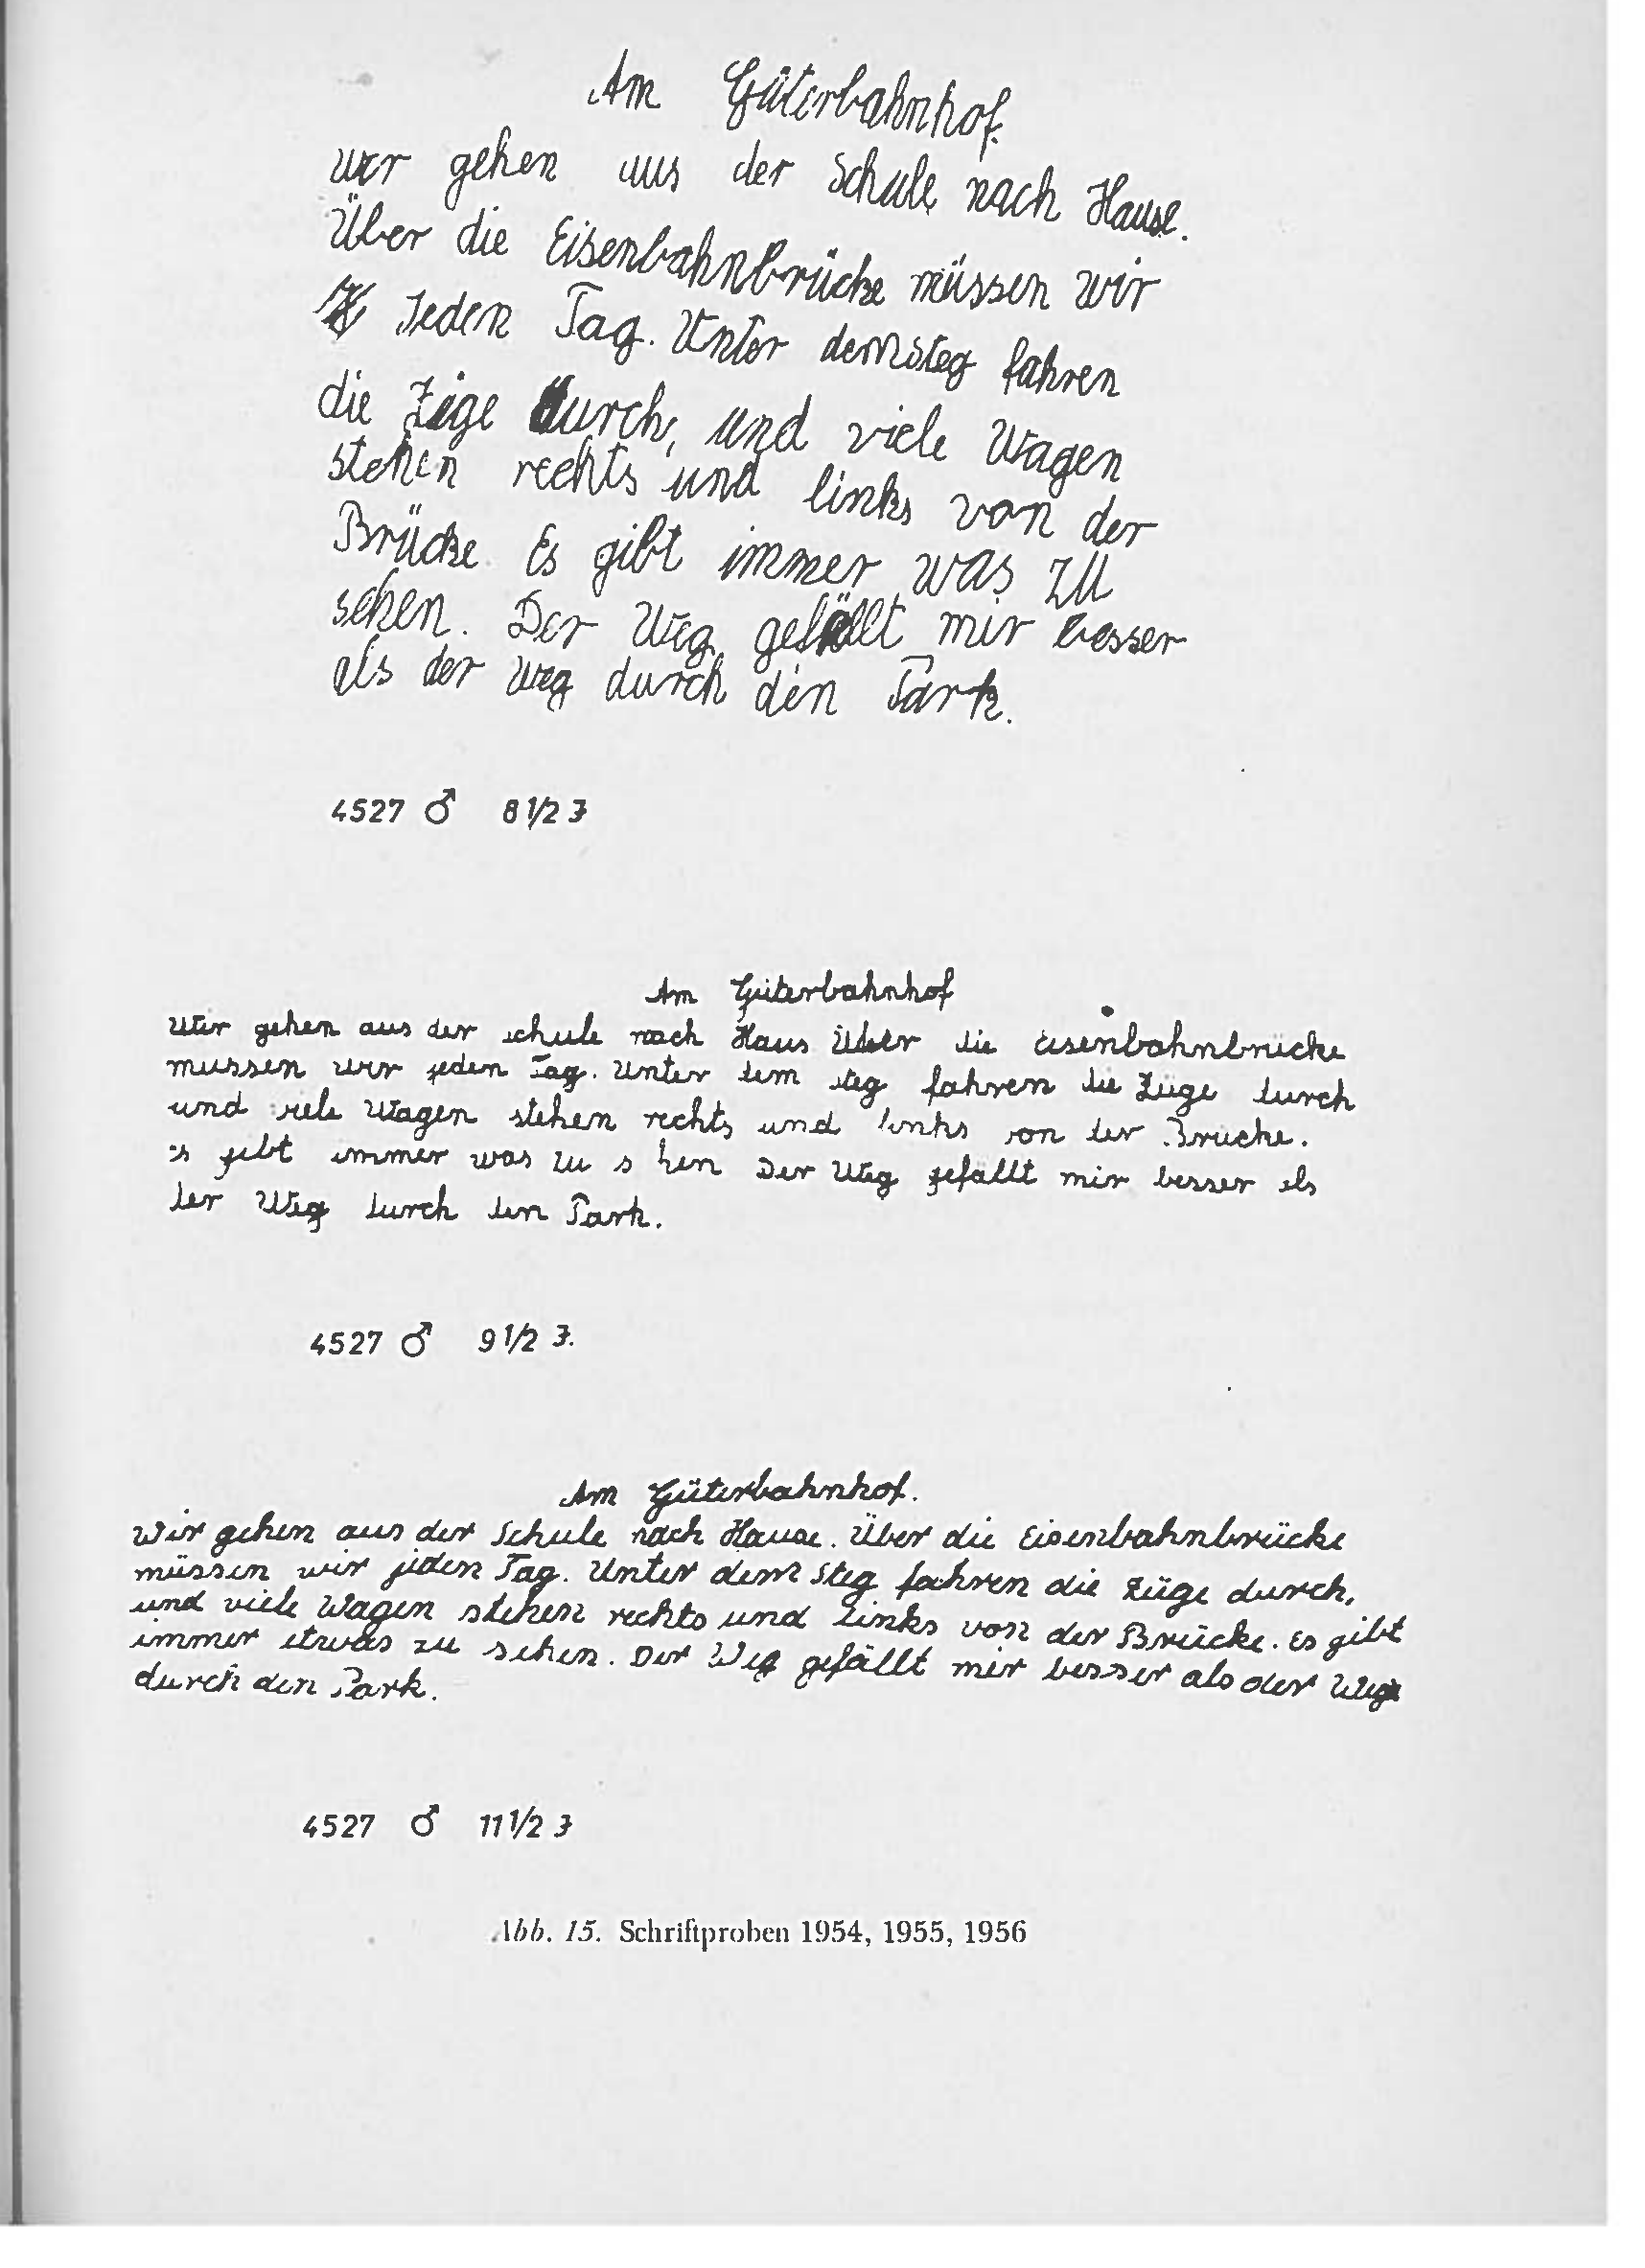 Am Güterbahnhof.
wir gehen aus der Schule nach Hause.
Über die Eisenbahnbrücke müssen wir
Jeden Tag. Unter demsteg fahren
die Züge durch, und viele Wagen
stehen rechts und links von der
Brücke Es gibt immer was zu
sehen. Der Weg gefällt mir besser
als der Weg durch den Park.
4527 ♂ 8 1/2 J
Am Güterbahnhof
Wir gehen aus der schule nach Haus Über die Eisenbahnbrücke
mussen wir jeden Tag. Unter dem steg fahren die Züge durch
und viele Wagen stehen rechts und links von der Brucke.
es gibt immer was zu s hen Der Weg gefällt mir besser als
der Weg durch den Park.
4527 ♂ 9 1/2 J.
Am Güterbahnhof.
Wir gehen aus der Schule nach Hause. Über die Eisenbahnbrücke
müssen wir jeden Tag. Unter dem Steg fahren die Züge durch,
und viele Wagen stehen rechts und links von der Brücke. Es gibt
immer etwas zu sehen. Der Weg gefällt mir besser als der Weg
durch den Park.
4527 ♂ 11 1/2 J
Abb. 15. Schriftproben 1954, 1955, 1956